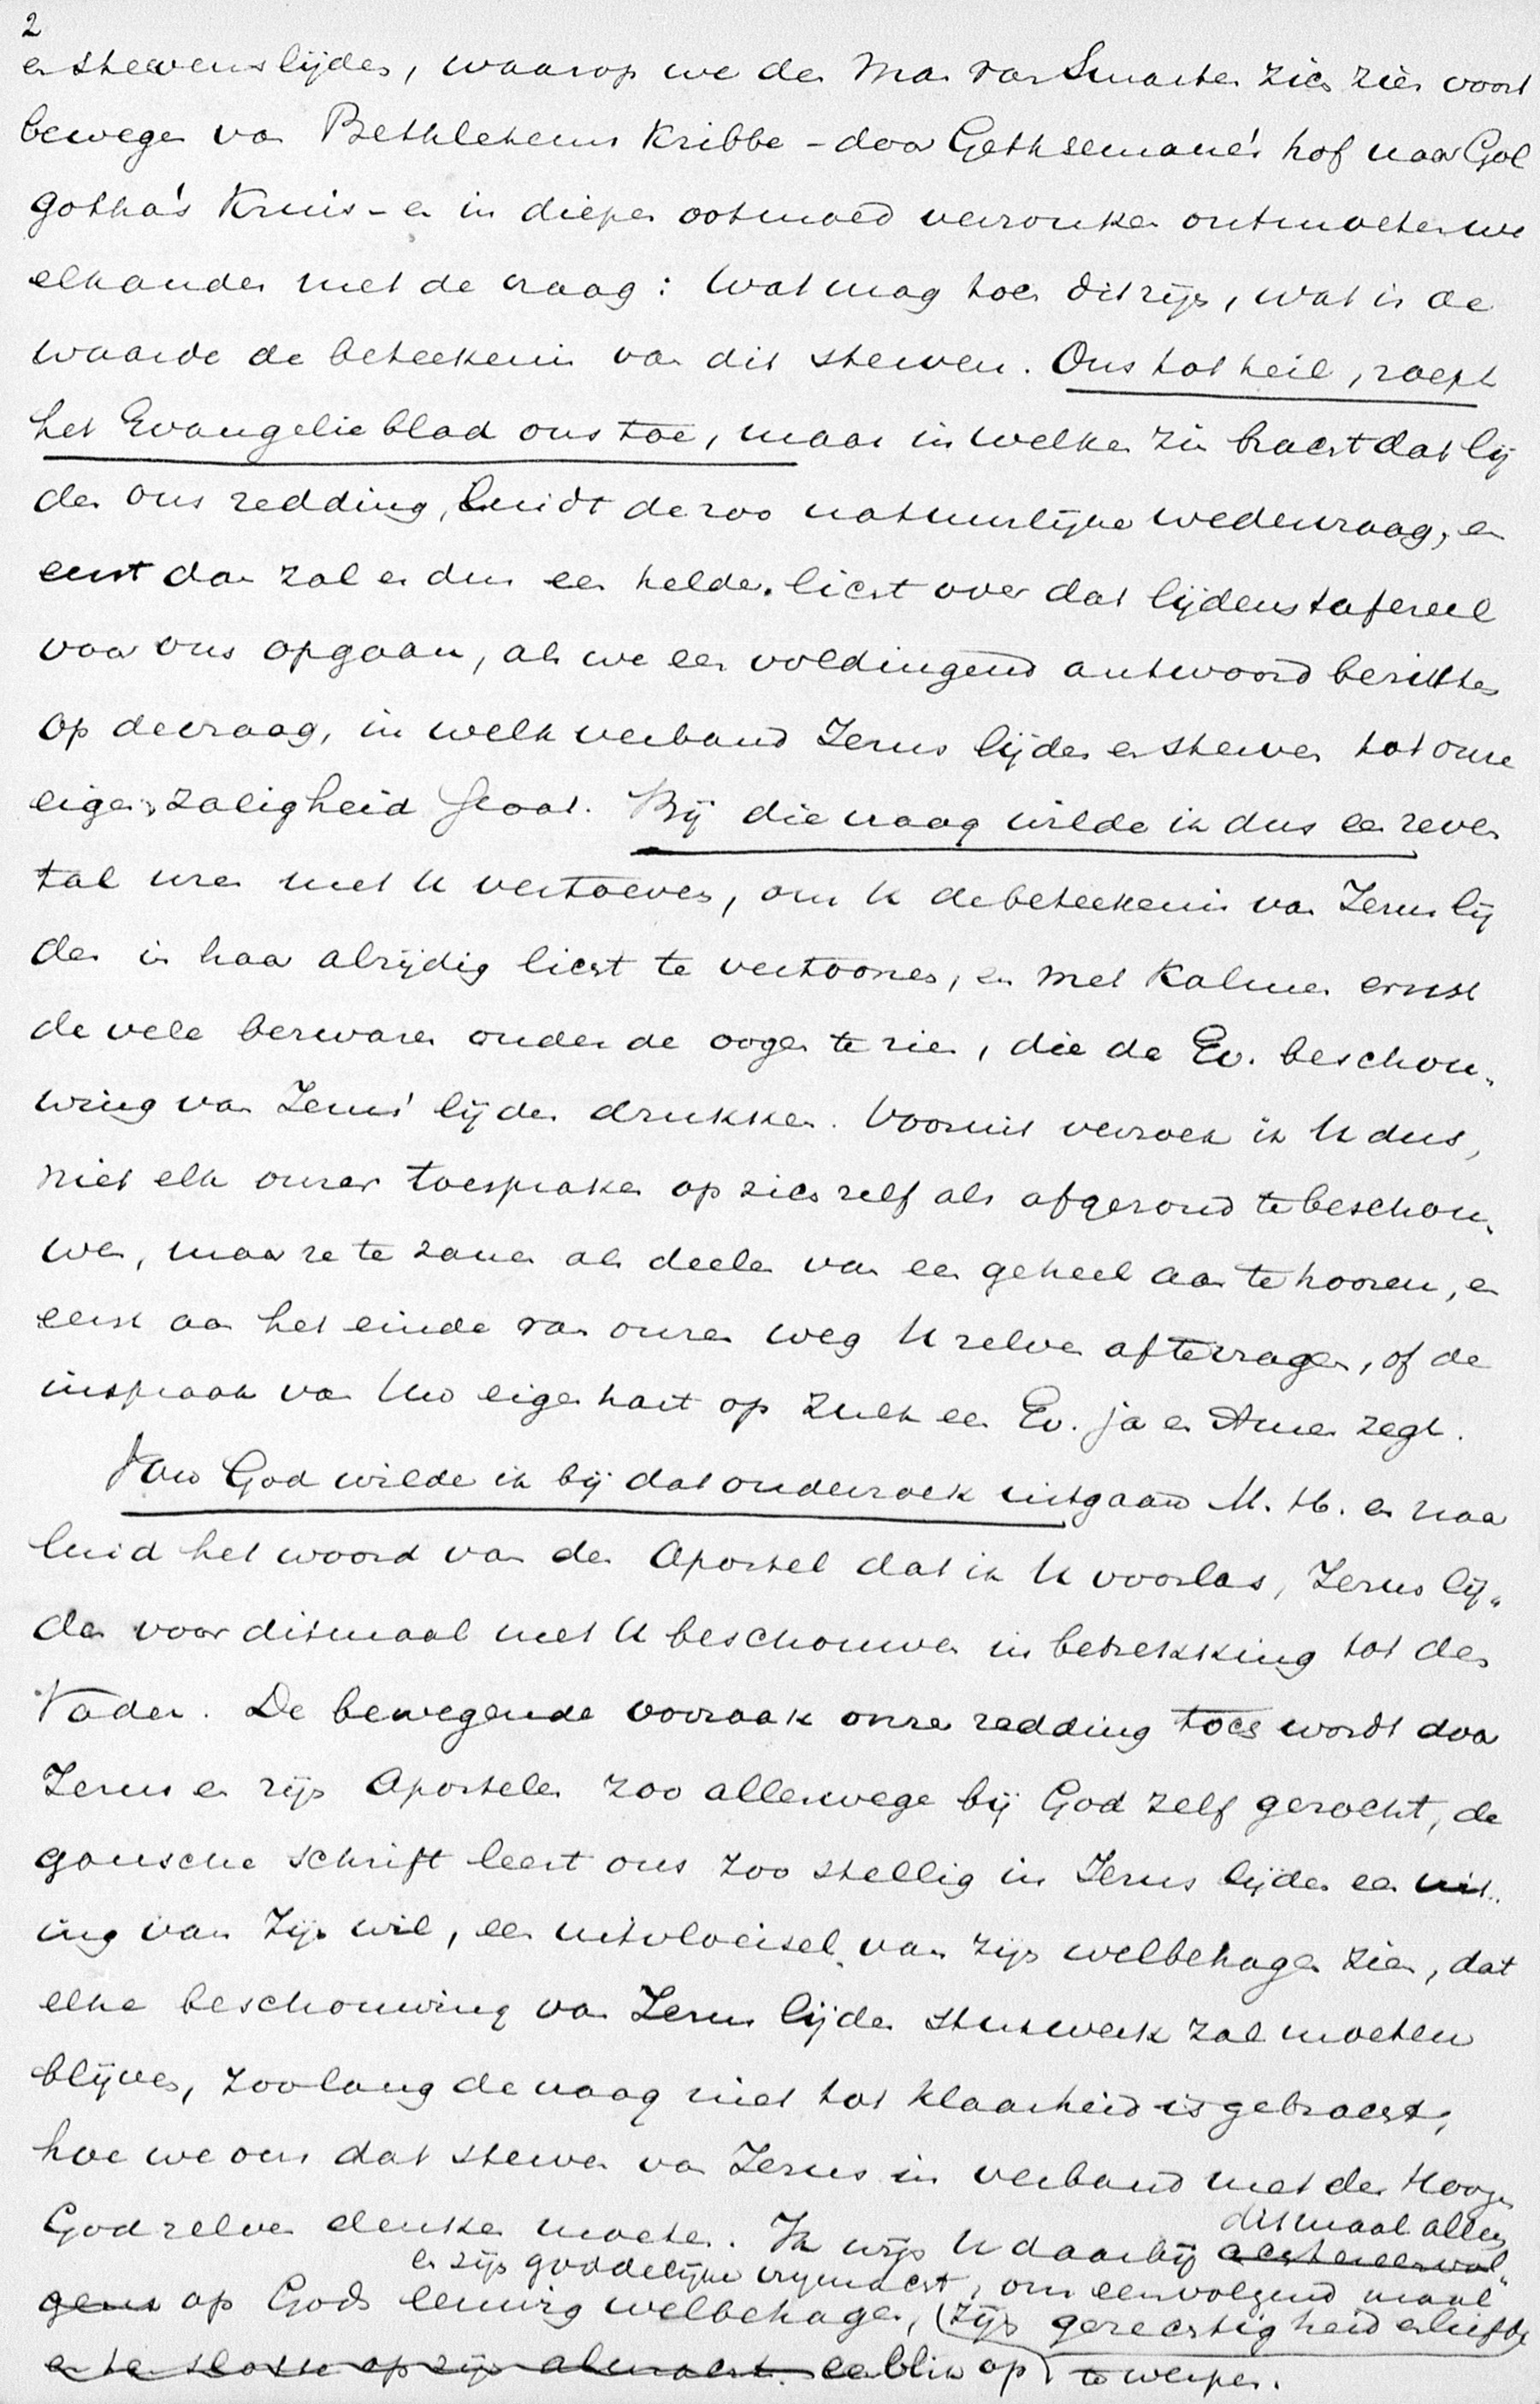 2
en stervenslijden, waarop we den Man van Smarten zich zien voort
bewegen van Bethlehems Kribbe - door Gethsemané's hof naar Gol
gotha's Kruis - en in diepen ootmoed verzonken ontmoeten we
elkander met de vraag: Wat mag toch dit zijn, wat is de
waarde de beteekenis van dit sterven. Ons tot heil, roept
het Evangelieblad ons toe, maar in welken zin bracht dat lij
den ons redding, luidt de zoo natuurlijke wedervraag, en
eerst dan zal er dus een helder licht over dat lijdenstafereel
voor ons opgaan, als we een voldingend antwoord bezitten
op de vraag, in welk verband Jezus lijden en sterven tot onze
eigen zaligheid staat. Bij die vraag wilde ik dus een zeven
tal uren met U vertoeven, om U de beteekenis van Jezus lij
den in haar alzijdig licht te vertoonen, en met Kalmen ernst
de vele bezwaren onder de oogen te zien, die de Ev. beschou-
wing van Jezus' lijden drukken. Vooruit verzoek ik U dus,
niet elk onzer toespraken op zich zelf als afgerond te beschou-
wen, maar ze te zamen als deelen van een geheel aan te hooren, en
eerst aan het einde van onzen weg U zelven af te vragen, of de
inspraak van Uw eigen hart op zulk een Ev. ja en Amen zegt.
Van God wilde ik bij dat onderzoek uitgaan M. H. en naar
luid het woord van den Apostel dat ik U voorlas, Jezus lij-
den voor ditmaal met U beschouwen in betrekking tot den
Vader. De bewegende oorzaak onzer redding toch wordt door
Jezus en zijn Apostelen zoo allerwege bij God zelf gezocht, de
gansche schrift leert ons zoo stellig in Jezus lijden een uit-
ing van Zijn wil, een uitvloeisel van zijn welbehagen zien, dat
elke beschouwing van Jezus lijden stukwerk zal moeten
blijven, zoolang de vraag niet tot klaarheid is gebracht,
hoe we ons dat sterven van Jezus in verband met den Hoogen
God zelven denken moeten. Ik wijs U daarbij achtereenvol-
ditmaal alleen
gens op Gods eeuwig welbehagen, (zijn gerechtigheid en liefde
en zijn goddelijke vrijmacht, om een volgend maal
en ten slotte op zijn almacht. een blik op) te werpen.